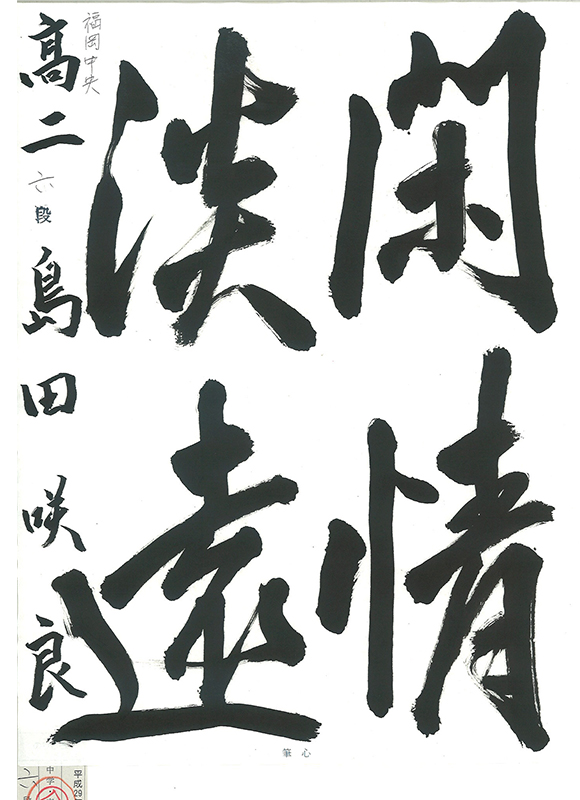 閑情
淡遠
福岡中央
高二 六段 島田咲良
心筆
平成29
中学
六